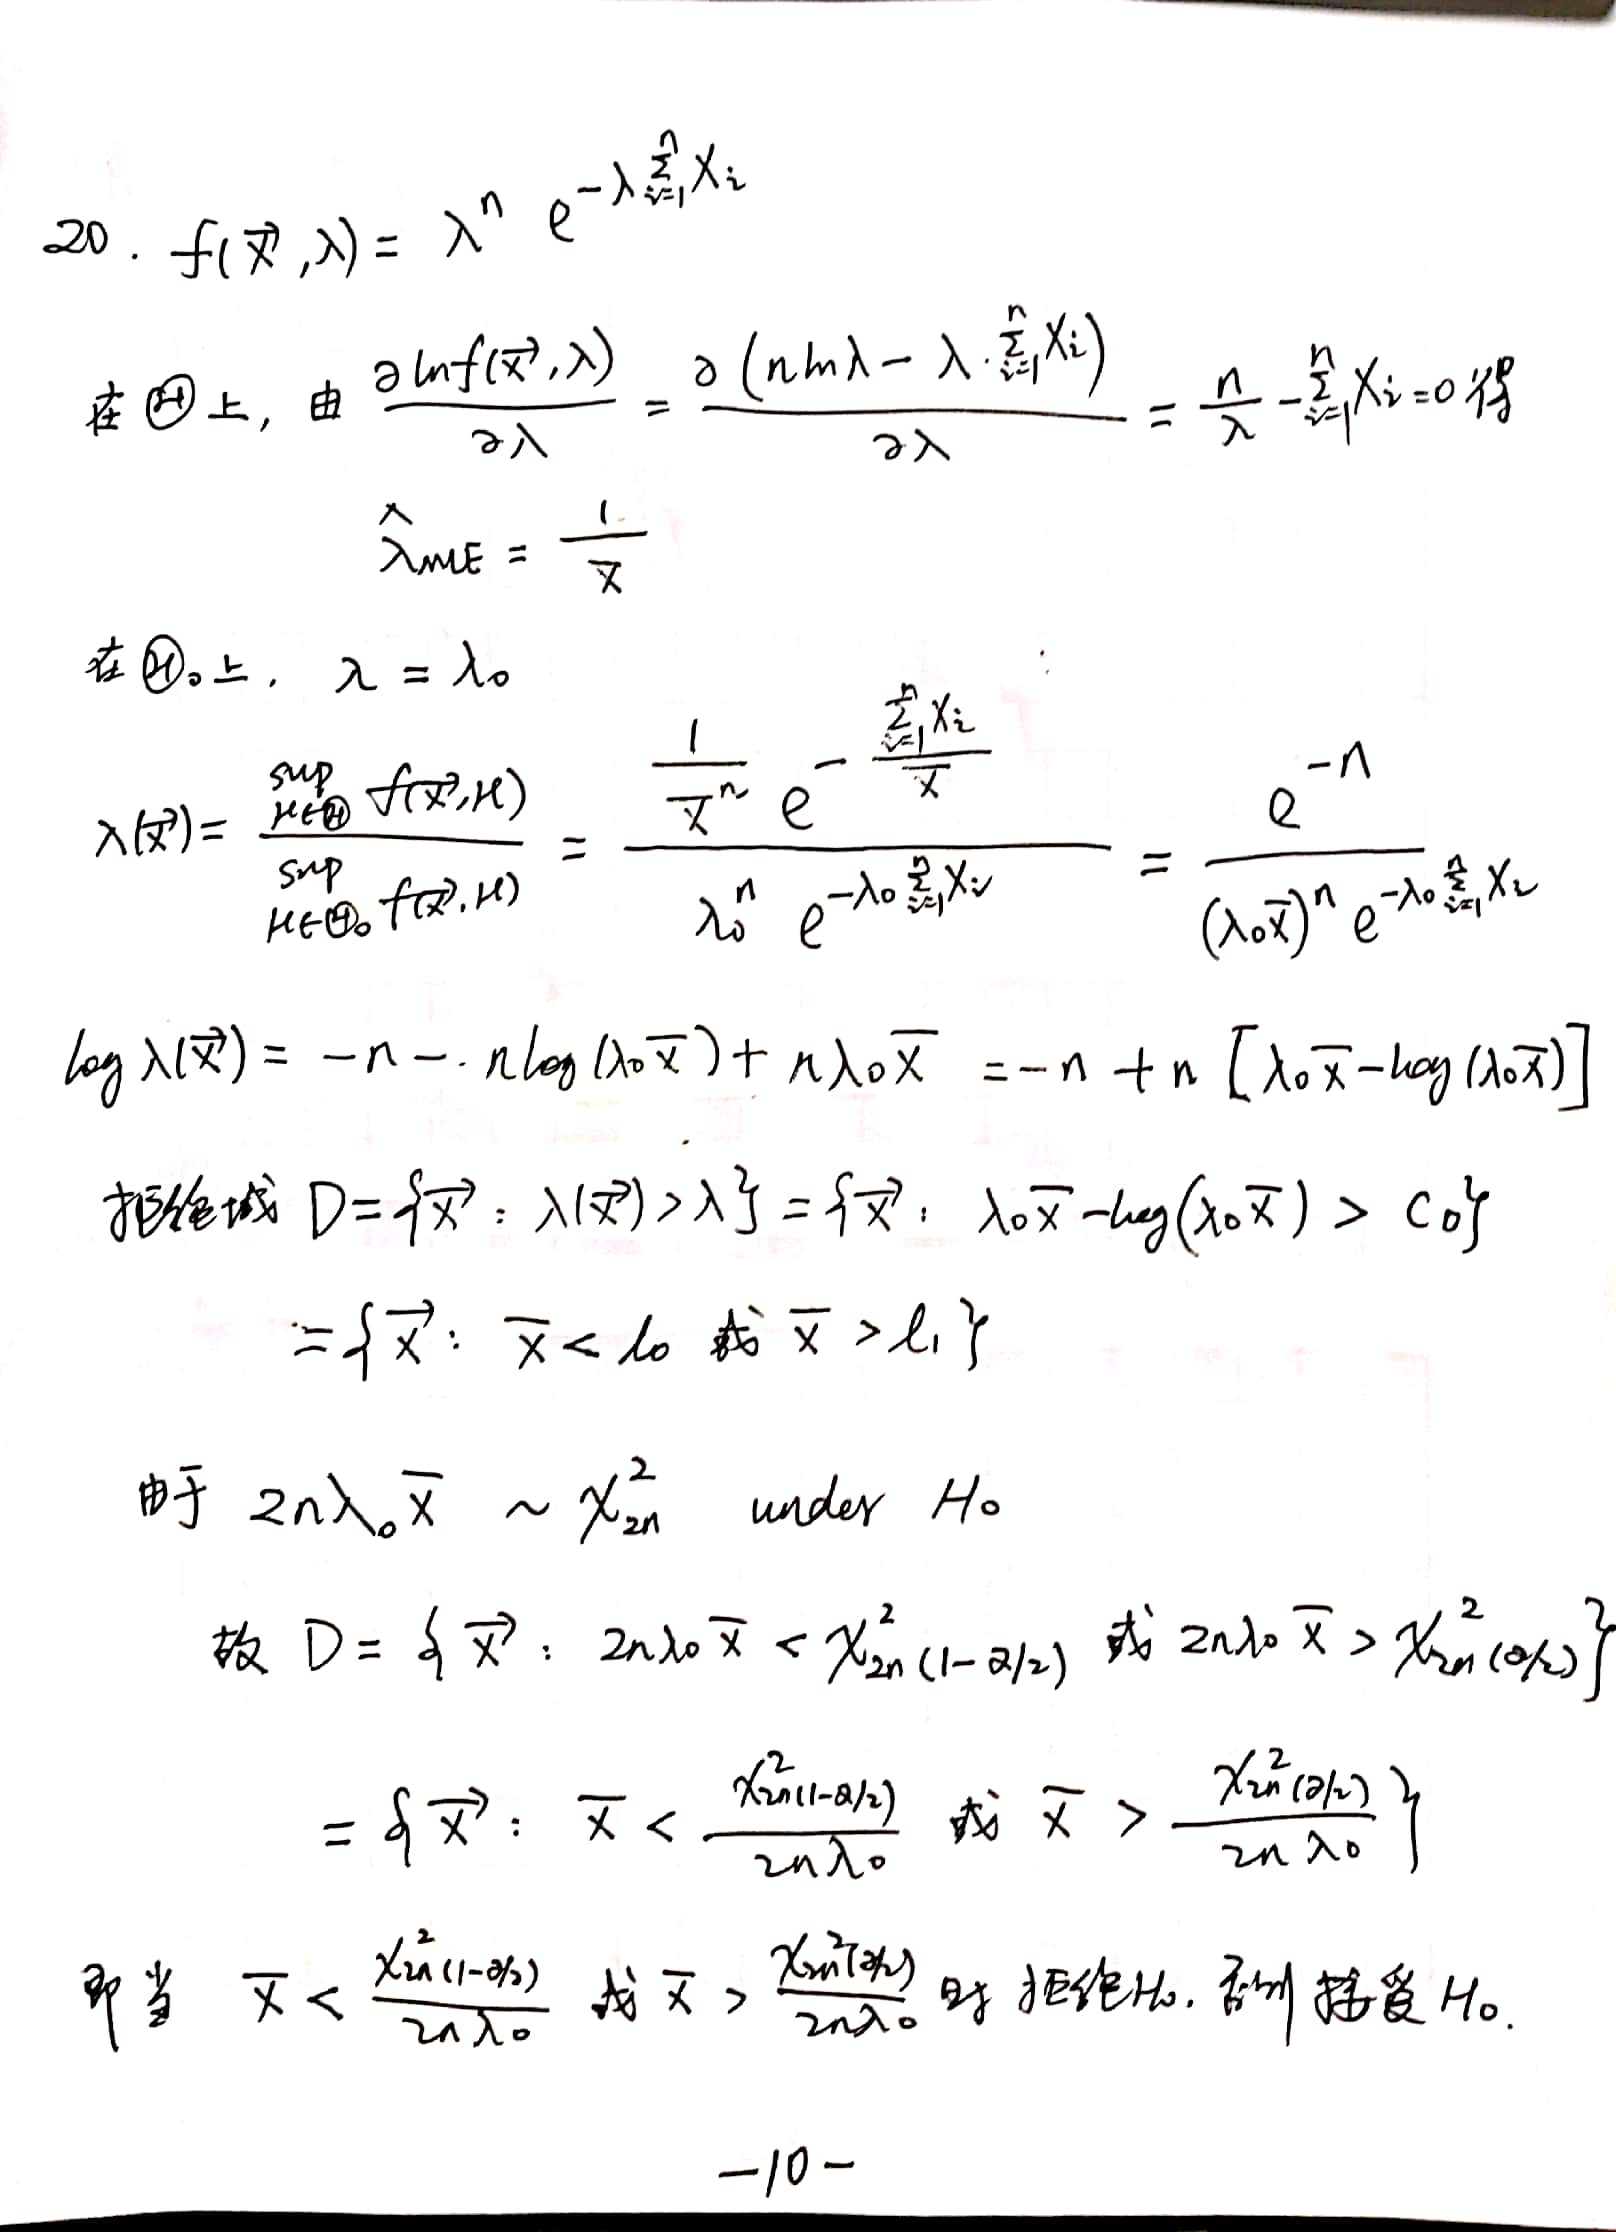 20. f(x⃗,λ) = λⁿ e^{-λ∑_{i=1}^{n} Xi}
在 Ⓗ 上, 由 ∂lnf(x⃗,λ)/∂λ = ∂(nlnλ - λ·∑_{i=1}^{n} Xi)/∂λ = n/λ - ∑_{i=1}^{n} Xi = 0 得
λ̂_{MLE} = 1/x̄
在 Ⓗ₀上, λ = λ₀
λ(x⃗) = sup_{μ∈Ⓗ} f(x⃗,μ) / sup_{μ∈Ⓗ₀} f(x⃗,μ) = (1/x̄ⁿ) e^{-∑_{i=1}^{n} Xi / x̄} / (λ₀ⁿ e^{-λ₀∑_{i=1}^{n} Xi}) = e^{-n} / ((λ₀x̄)ⁿ e^{-λ₀∑_{i=1}^{n} Xi})
log λ(x⃗) = -n - n log(λ₀x̄) + nλ₀x̄ = -n + n [λ₀x̄ - log(λ₀x̄)]
拒绝域 D = {x⃗ : λ(x⃗) > λ} = {x⃗ : λ₀x̄ - log(λ₀x̄) > C₀}
= {x⃗ : x̄ < l₀ 或 x̄ > l₁}
由于 2nλ₀x̄ ~ χ²_{2n} under H₀
故 D = {x⃗ : 2nλ₀x̄ < χ²_{2n}(1-α/2) 或 2nλ₀x̄ > χ²_{2n}(α/2)}
= {x⃗ : x̄ < χ²_{2n}(1-α/2)/2nλ₀ 或 x̄ > χ²_{2n}(α/2)/2nλ₀}
即当 x̄ < χ²_{2n}(1-α/2)/2nλ₀ 或 x̄ > χ²_{2n}(α/2)/2nλ₀ 时 拒绝H₀. 否则 接受 H₀.
-10-